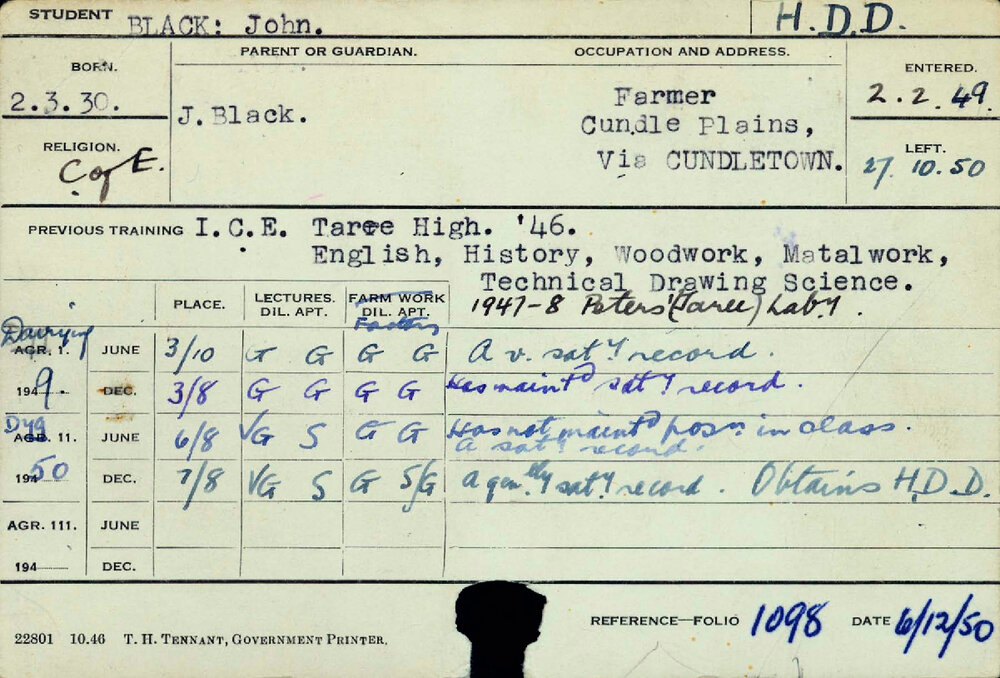 STUDENT BLACK: John. H.D.D.
PARENT OR GUARDIAN. OCCUPATION AND ADDRESS.
BORN. ENTERED.
2.3.30. J. Black. Farmer 2.2.49.
Cundle Plains,
RELIGION. LEFT.
C of E. Via CUNDLETOWN. 27.10.50
PREVIOUS TRAINING I.C.E. Taree High. '46.
English, History, Woodwork, Matalwork,
Technical Drawing Science.
1947-8 Peters' (Taree) Laby.
PLACE. LECTURES. DIL. APT. FARM WORK DIL. APT.
Factory
Dairying
AGR. 1. JUNE 3/10 G G G G A v. saty record.
1949. DEC. 3/8 G G G G Has maintd saty record.
Dyg
AGR. 11. JUNE 6/8 VG S G G Has not maintd posn in class.
A saty record.
1950 DEC. 7/8 VG S G S/G A genlly saty record. Obtains H.D.D.
AGR. 111. JUNE
194 DEC.
REFERENCE—FOLIO 1098 DATE 6/12/50
22801 10.46 T. H. TENNANT, GOVERNMENT PRINTER.